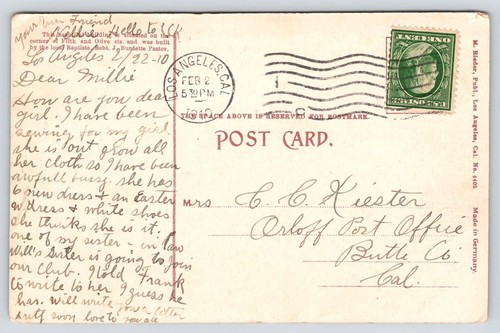 your true Friend
Hello to
This building is situated on the
corner of Fifth and Olive sts. and was built
by the local Baptists, Robt. J. Burdette Pastor.
Los Angeles 2/22-10
Dear Millie
How are you dear
girl. I have been
sewing for my girl
she is out grow all
her cloth so I have been
awfull bussy. she has
6 new dress & an Easter
dress & white shoes
she thinks she is it.
one of my sister-in law
Will's Sister is going to join
our Club. I told Frank
to write to her I guess he
has. will write you a letter
soon love to you all
LOS ANGELES, CAL.
FEB 2
5 30 PM
THE SPACE ABOVE IS RESERVED FOR POSTMARK.
POST CARD.
Mrs C. C. Kiester
Orloff Post Office
Butte Co
Cal.
U.S. POSTAGE
ONE CENT
M. Rieder, Publ., Los Angeles, Cal. No. Made in Germany.